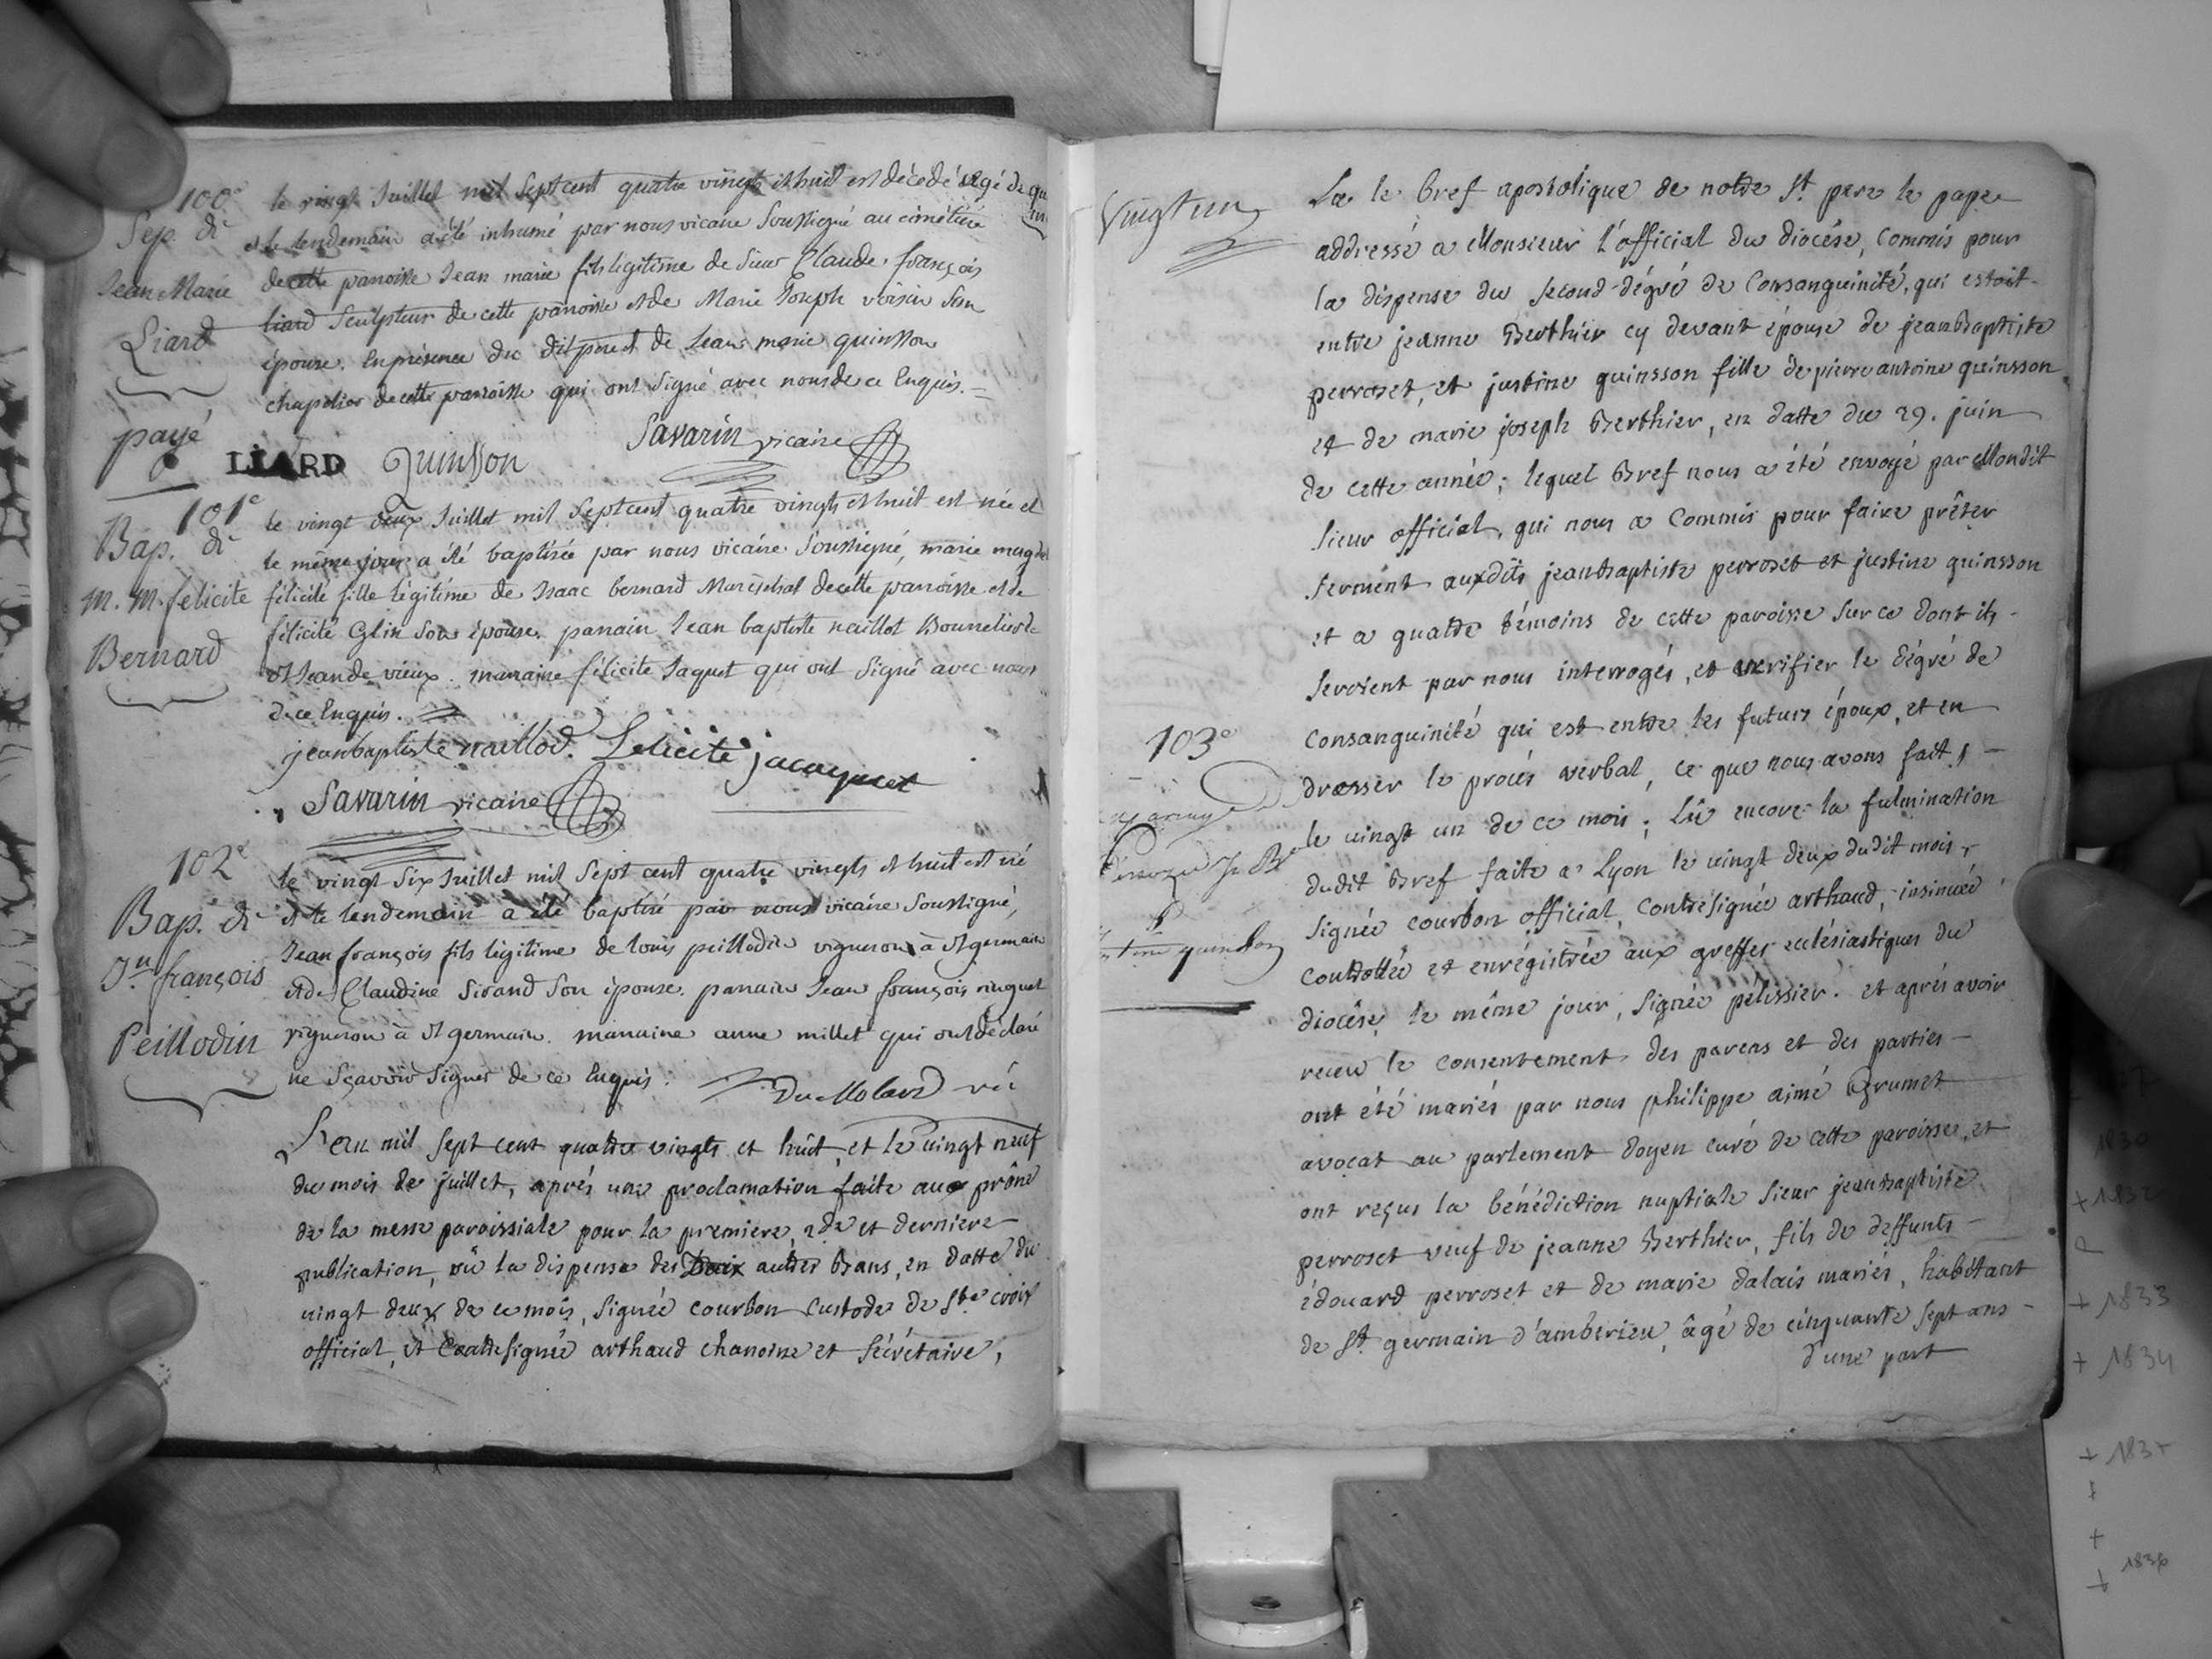 100e
Sep. de
Jean Marie
Liard
payé
le vingt Juillet mil Sept cent quatre vingts et huit est décédé agé de
et le lendemain a été inhumé par nous vicaire Soussigné au cimétière
de cette parroisse Jean marie fils légitime de Sieur Claude françois
liard Sculpteur de cette parroisse et de Marie Joseph voisin Son
épouse. En présence du dit pere et de Jean marie quinsson
chapelier de cette parroisse qui ont Signé avec nous de ce Enquis.
Savarin vicaire
LIARD Quinsson
101e
Bap. de
m. m. félicite
Bernard
le vingt deux Juillet mil Sept cent quatre vingts et huit est née et
le même jour a été baptisée par nous vicaire Soussigné, marie magd
félicité fille légitime de Isaac bernard Maréschal de cette parroisse et de
félicité Glin Son épouse. parrain Jean baptiste naillod Bourrelier de
St Jean de vieux. marraine félicite Jaquet qui ont Signé avec nous
de ce Enquis.
jeanbaptiste naillod. Felicite jacquet
Savarin vicaire
102e
Bap. de
Jn françois
Peillodin
le vingt Six Juillet mil Sept cent quatre vingts et huit est né
et le lendemain a été baptisé par nous vicaire Soussigné,
Jean françois fils légitime de louis peillodin vigneron à St germain
et de Claudine Sirand Son épouse. parrain Jean françois
vigneron à St germain. marraine anne millet qui ont déclaré
ne Sçavoir Signer de ce Enquis.
Du Molard vic
L'an mil Sept cent quatre vingts et huit, et le vingt neuf
du mois de juillet, aprés une proclamation faite aux prône
de la messe paroissiale pour la premiere, 2de et derniere
publication, vû la dispense des Deux autres Bans, en datte du
vingt deux de ce mois, Signée courbon custode de Ste croix
official, et Contresigné arthaud chanoine et Sécrétaire,
Vingt un
103e
La le Bref apostolique de notre St. pere le pape
addressé a Monsieur l'official du diocése, Commis pour
la dispense du second dégré de Consanguinité, qui estoit
entre jeanne Berthier cy devant épouse de jeanbaptiste
perroset, et justine quinsson fille de pierre antoine quinsson
et de marie joseph Berthier, en datte du 29. juin
de cette année; lequel Bref nous a été envoyé par Mondit
Sieur official, qui nous a Commis pour faire prêter
Serment auxdits jeanbaptiste perroset et justine quinsson
et a quatre témoins de cette paroisse sur ce dont ils
Seroient par nous interrogés, et verifier le dégré de
consanguinité qui est entre les futurs époux, et en
dresser le procés verbal, ce que nous avons fait,
le vingt un de ce mois; lû encore la fulmination
dudit Bref faite a Lyon le vingt deux dudit mois,
Signée courbon official, contresignée arthaud, insinuée
controllée et enrégistrée aux greffes ecclésiastiques du
diocése, le même jour, signée pélissier. et aprés avoir
receu le consentement des parens et des parties
ont été mariés par nous philippe aimé Brumet
avocat au parlement doyen curé de cette paroisse, et
ont reçus la bénédiction nuptiale sieur jeanbaptiste
perroset veuf de jeanne Berthier, fils de deffunts
édouard perroset et de marie dalais mariés, habitant
de St germain d'amberieu, âgé de cinquante sept ans
d'une part
1830
+ 1832
+ 1833
+ 1834